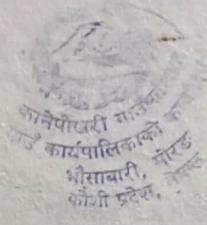 कानेपोखरी गाउँपालिका
गाउँ कार्यपालिकाको कार्यालय
भौसाबारी, मोरङ
कोशी प्रदेश, नेपाल